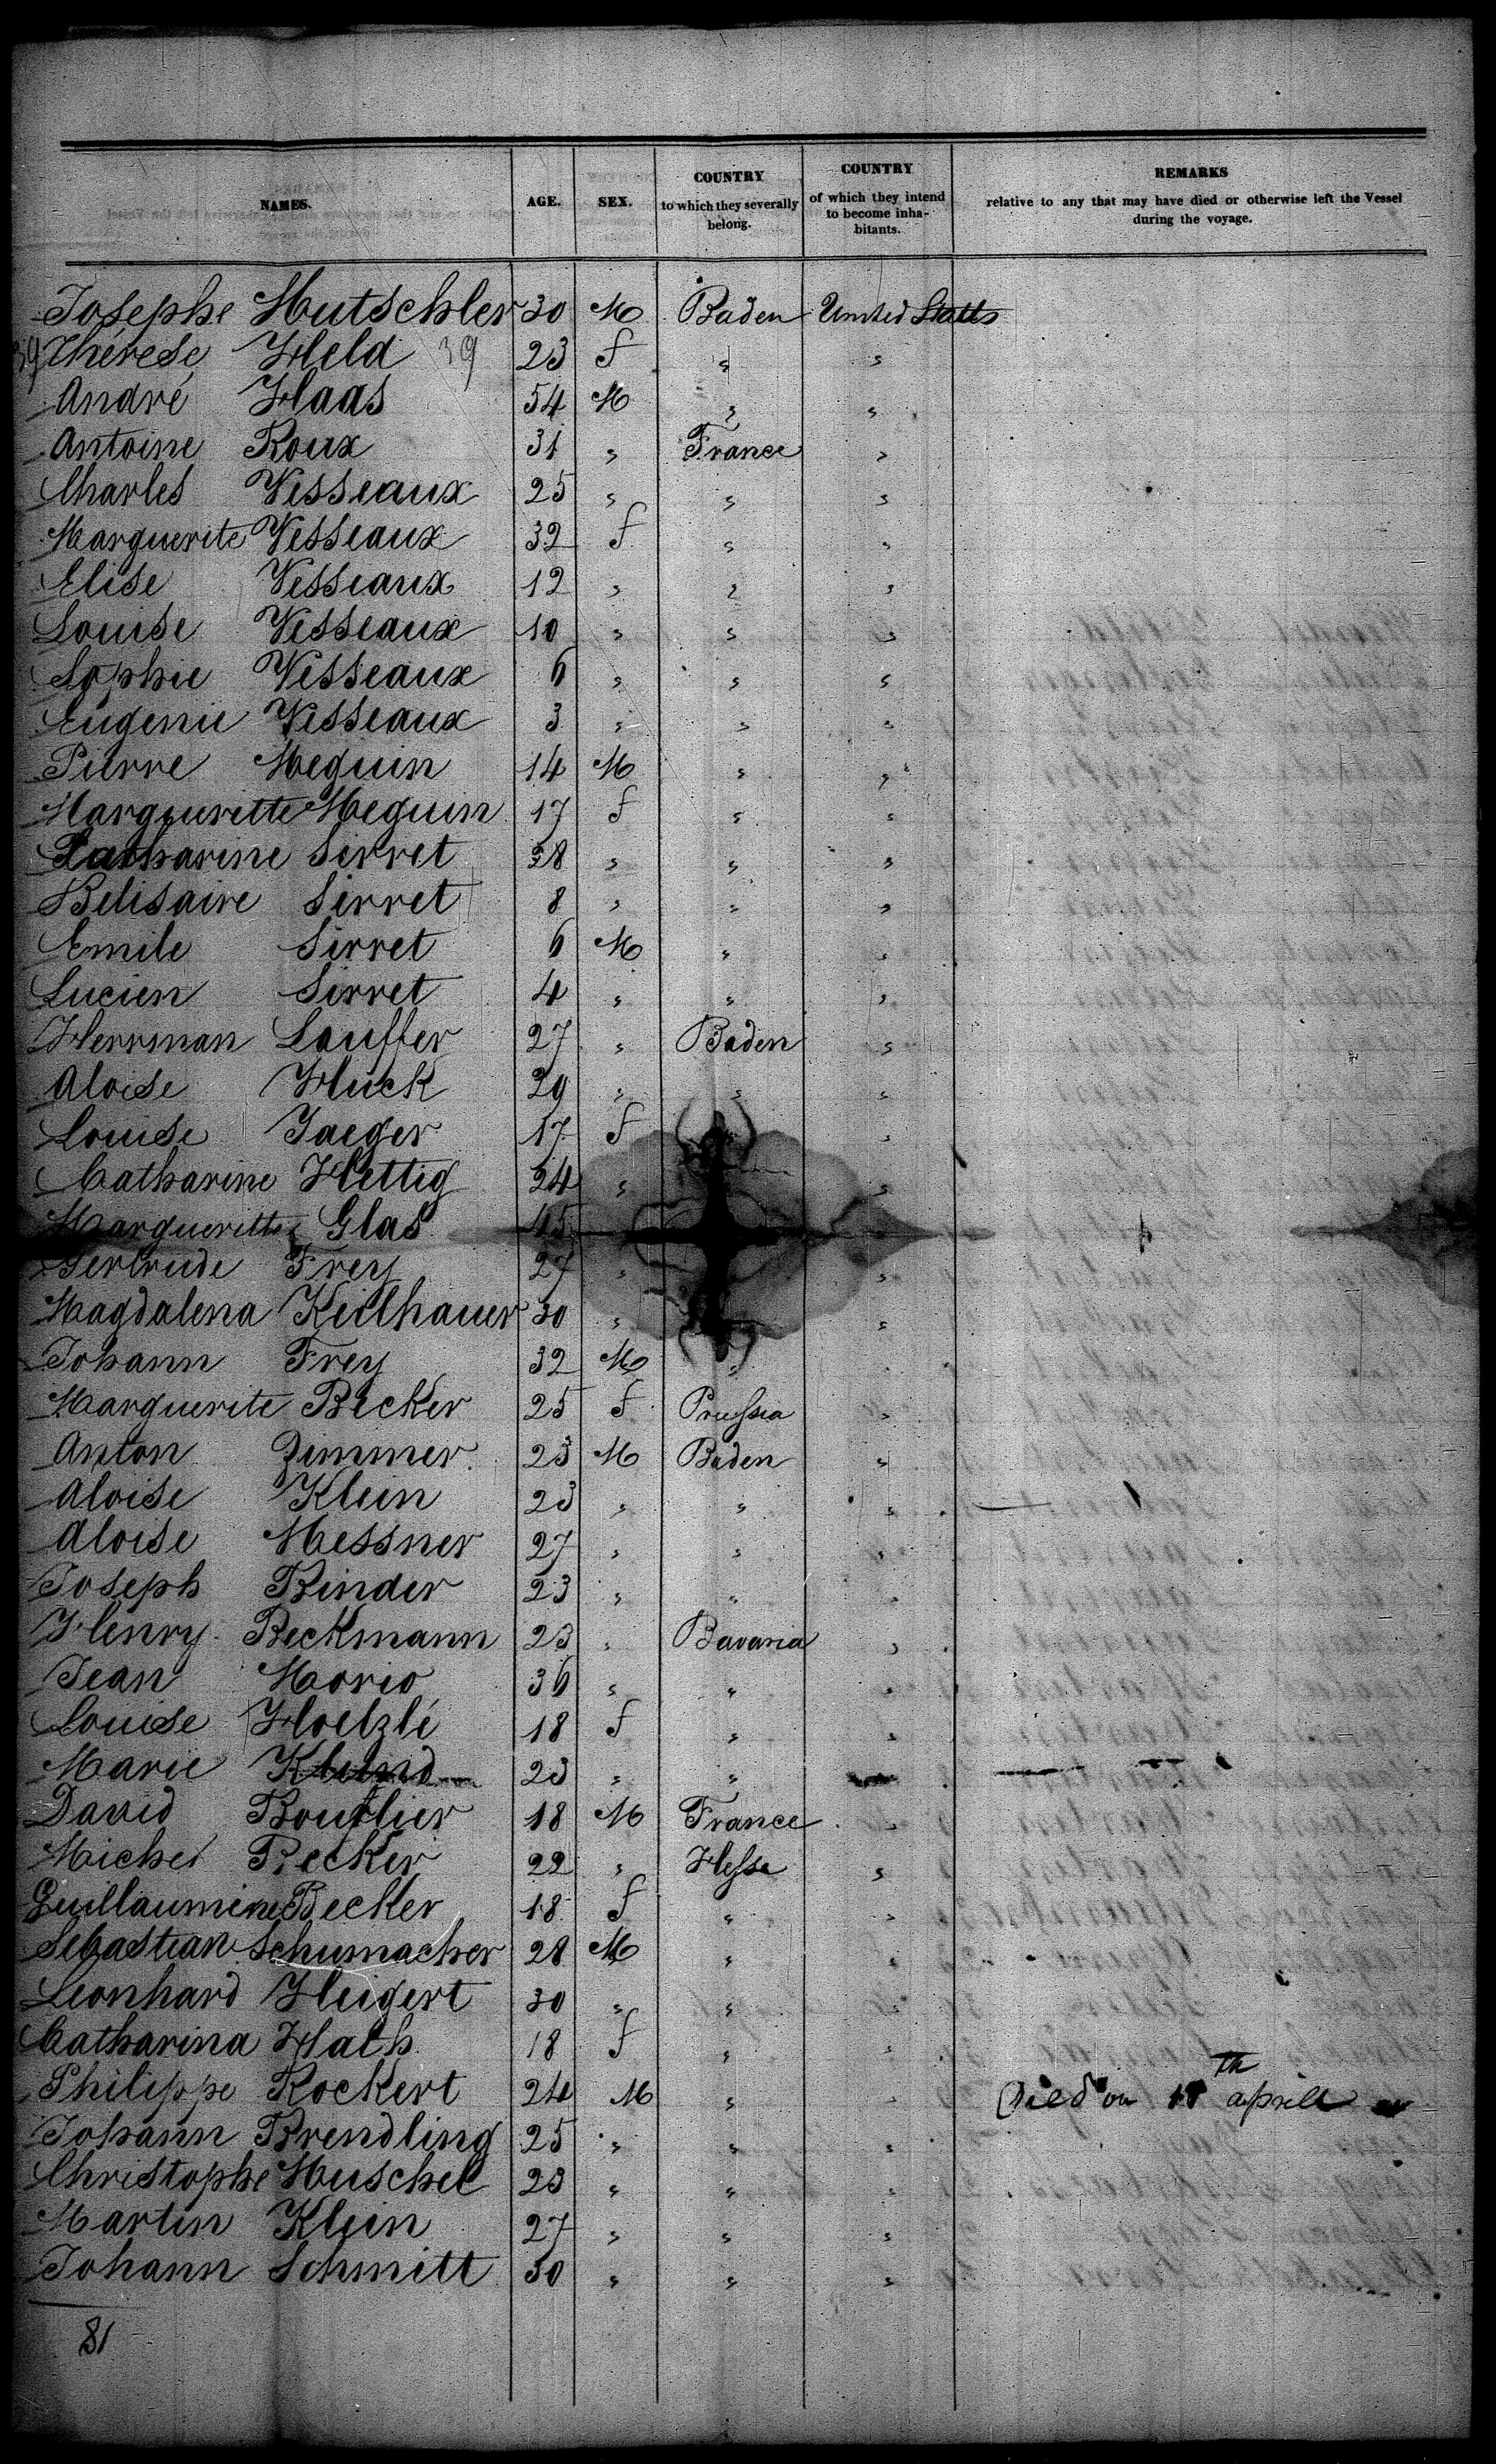 NAMES. AGE. SEX. COUNTRY to which they severally belong. COUNTRY of which they intend to become inhabitants. REMARKS relative to any that may have died or otherwise left the Vessel during the voyage.
Josephe Hutschler 30 M Baden United States
39 Thérèse Held 39 23 f " "
André Haas 54 M " "
Antoine Roux 31 " France "
Charles Vesseaux 25 " " "
Marguerite Vesseaux 32 f " "
Elise Vesseaux 12 " " "
Louise Vesseaux 10 " " "
Sophie Vesseaux 6 " " "
Eugenie Vesseaux 3 " " "
Pierre Mequin 14 M " "
Margueritte Mequin 17 f " "
Catharine Sirret 38 " " "
Belisaire Sirret 8 " " "
Emile Sirret 6 M " "
Lucien Sirret 4 " " "
Herrman Lauffer 27 " Baden "
Aloise Huck 29 " " "
Louise Jaeger 17 f "
Catharine Hettig 24 " "
Margueritte Glas 45
Gertrude Frey 27 " "
Magdalena Keilhauer 30 " "
Johann Frey 32 M " "
Marguerite Becker 25 f Prussia "
Anton Zimmer 23 M Baden "
Aloise Klein 23 " " "
Aloise Messner 27 " " "
Joseph Binder 23 " " "
Henry Beckmann 23 " Bavaria "
Jean Morio 36 " " "
Louise Hoelzlé 18 f " "
Marie 23 " "
David Bouthier 18 M France "
Michel Becker 22 " Hesse "
Guillaumine Becker 18 f " "
Sebastian Schumacher 28 M " "
Leonhard Heigert 30 " " "
Catharina Hath 18 f " "
Philippe Rockert 24 M " " Died on th aprill
Johann Brendling 25 " " "
Christophe Muschel 23 " " "
Martin Klein 27 " " "
Johann Schmitt 30 " " "
81